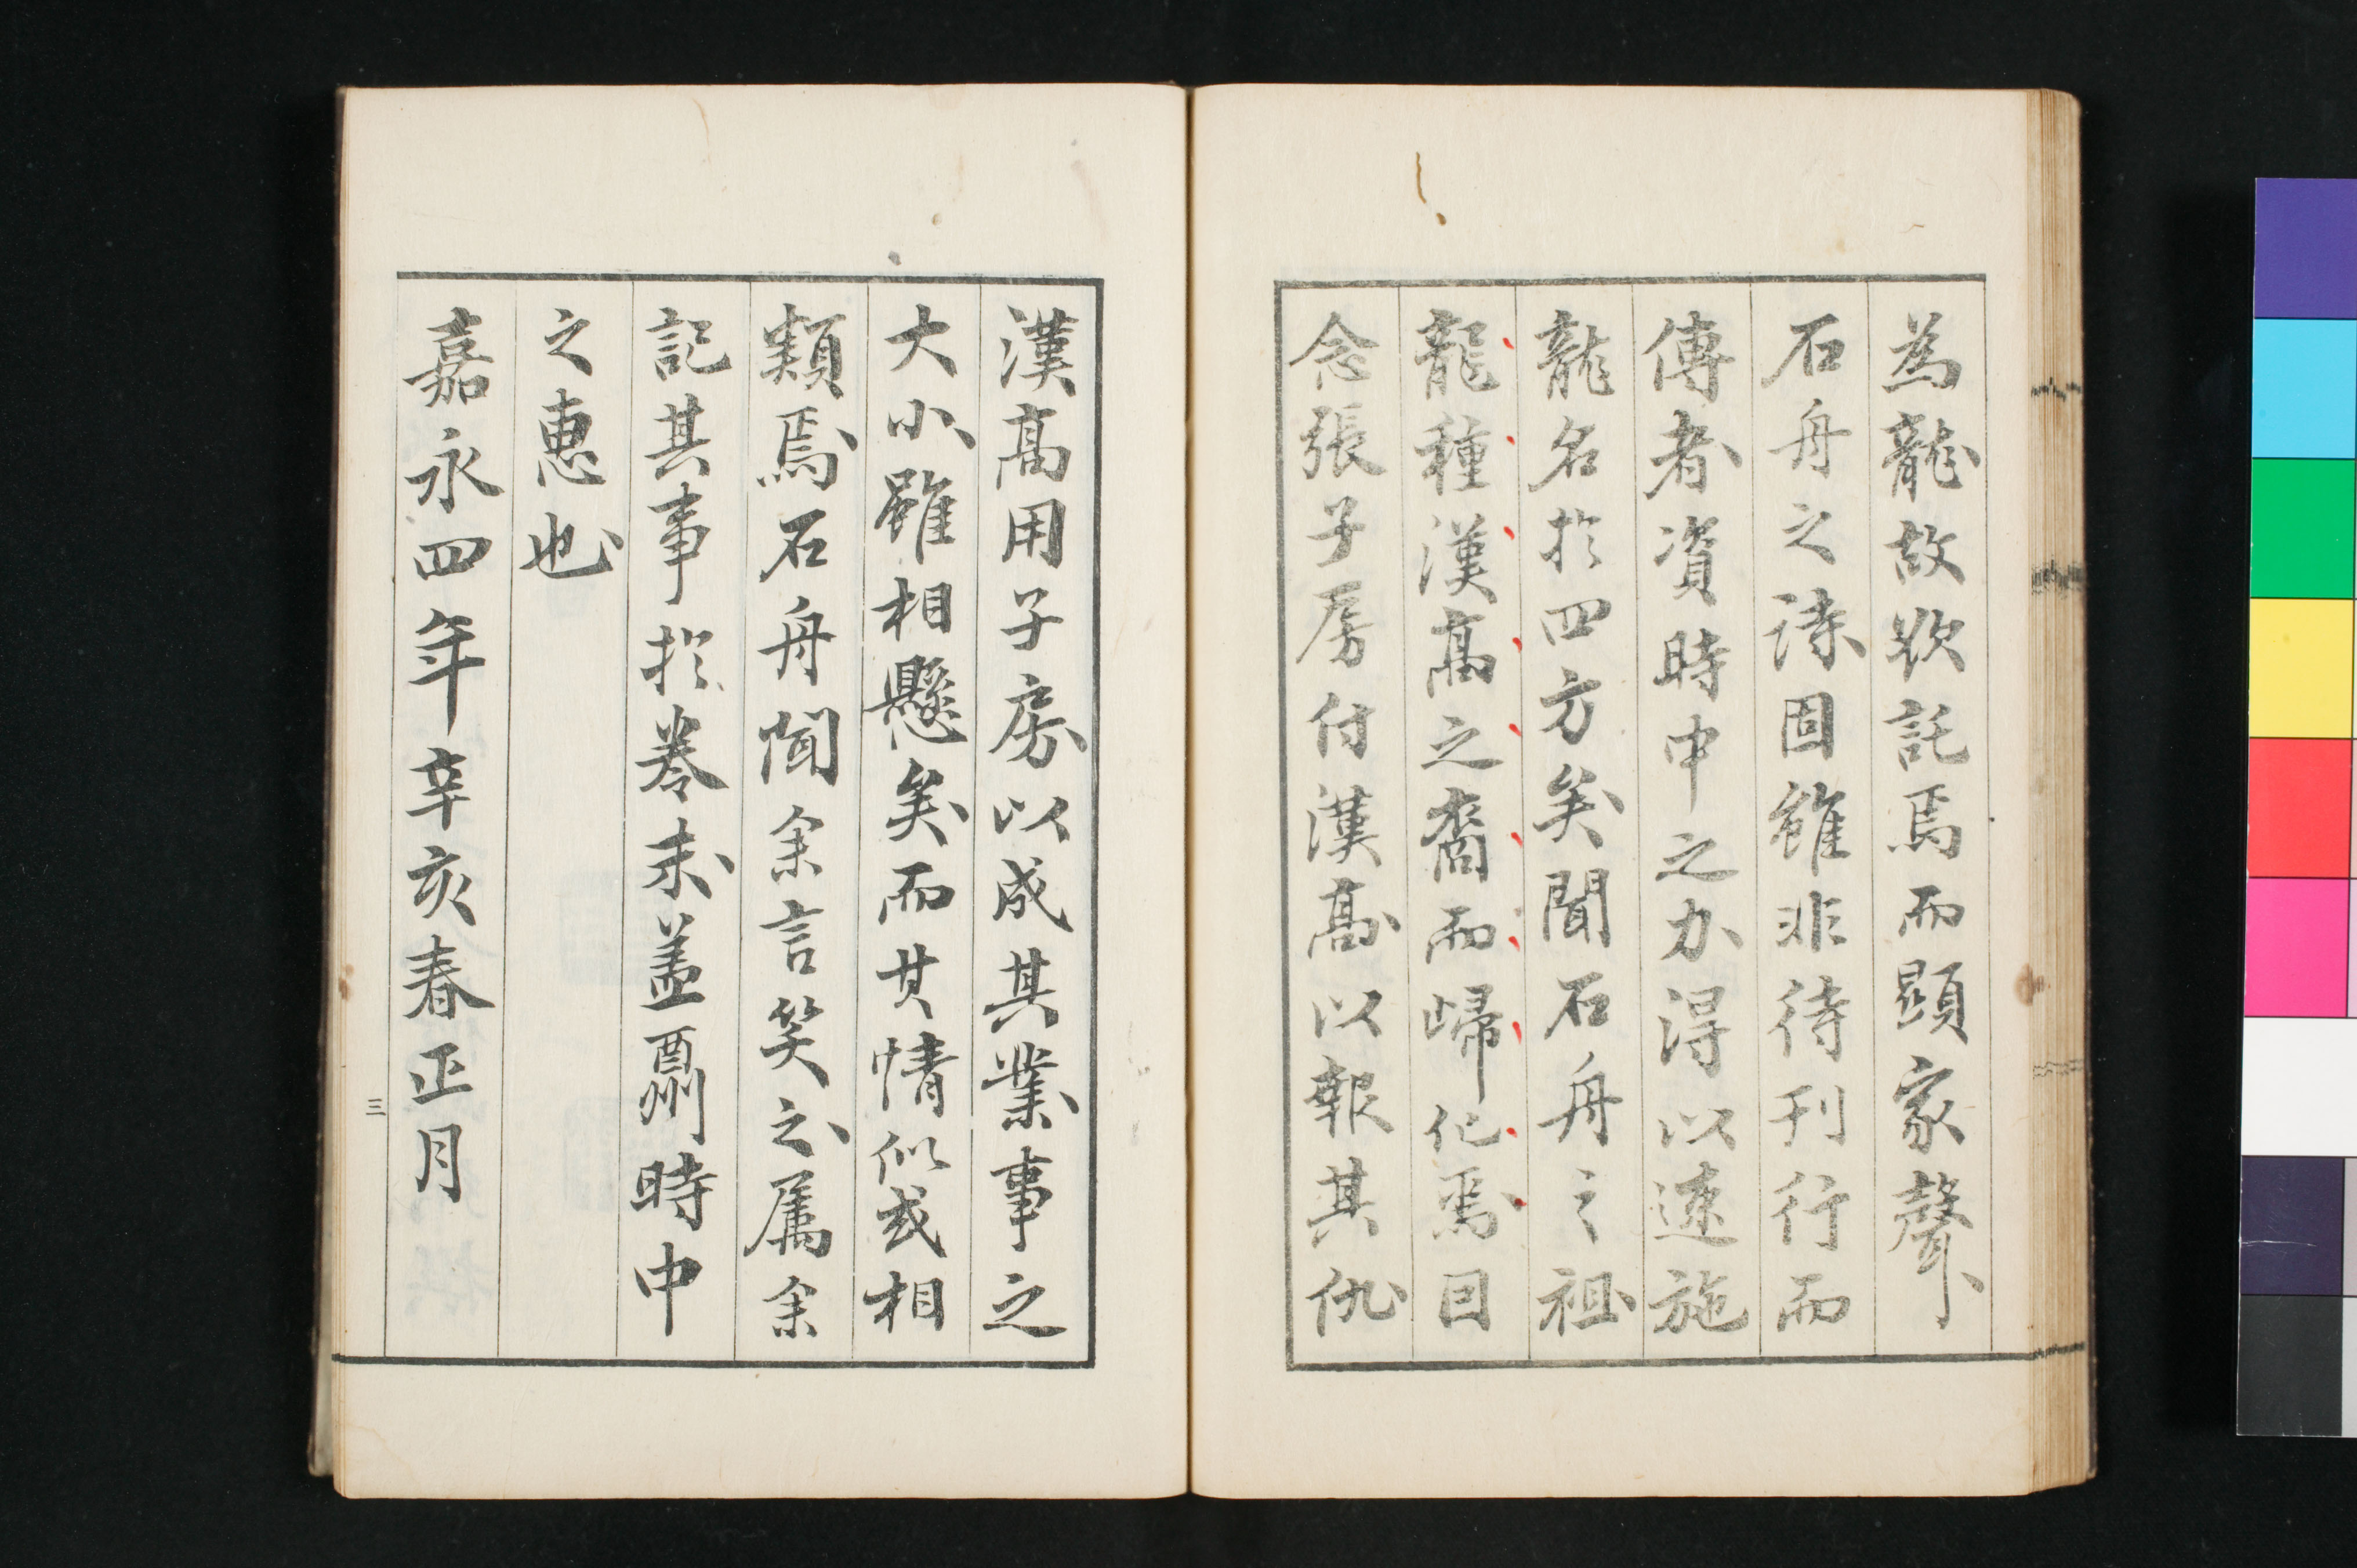 為龍故欲託焉而顕家聲
石舟之詩固雖非待刊行而
傳者資時中之力得以遠施
龍名於四方矣聞石舟之祖
龍種漢高之裔而歸化焉因
念張子房付漢高以報其仇
漢高用子房以成其業事之
大小雖相懸矣而其情似或相
類焉石舟聞余言笑之属余
記其事於巻末盖酬時中
之惠也
嘉永四年辛亥春正月
三